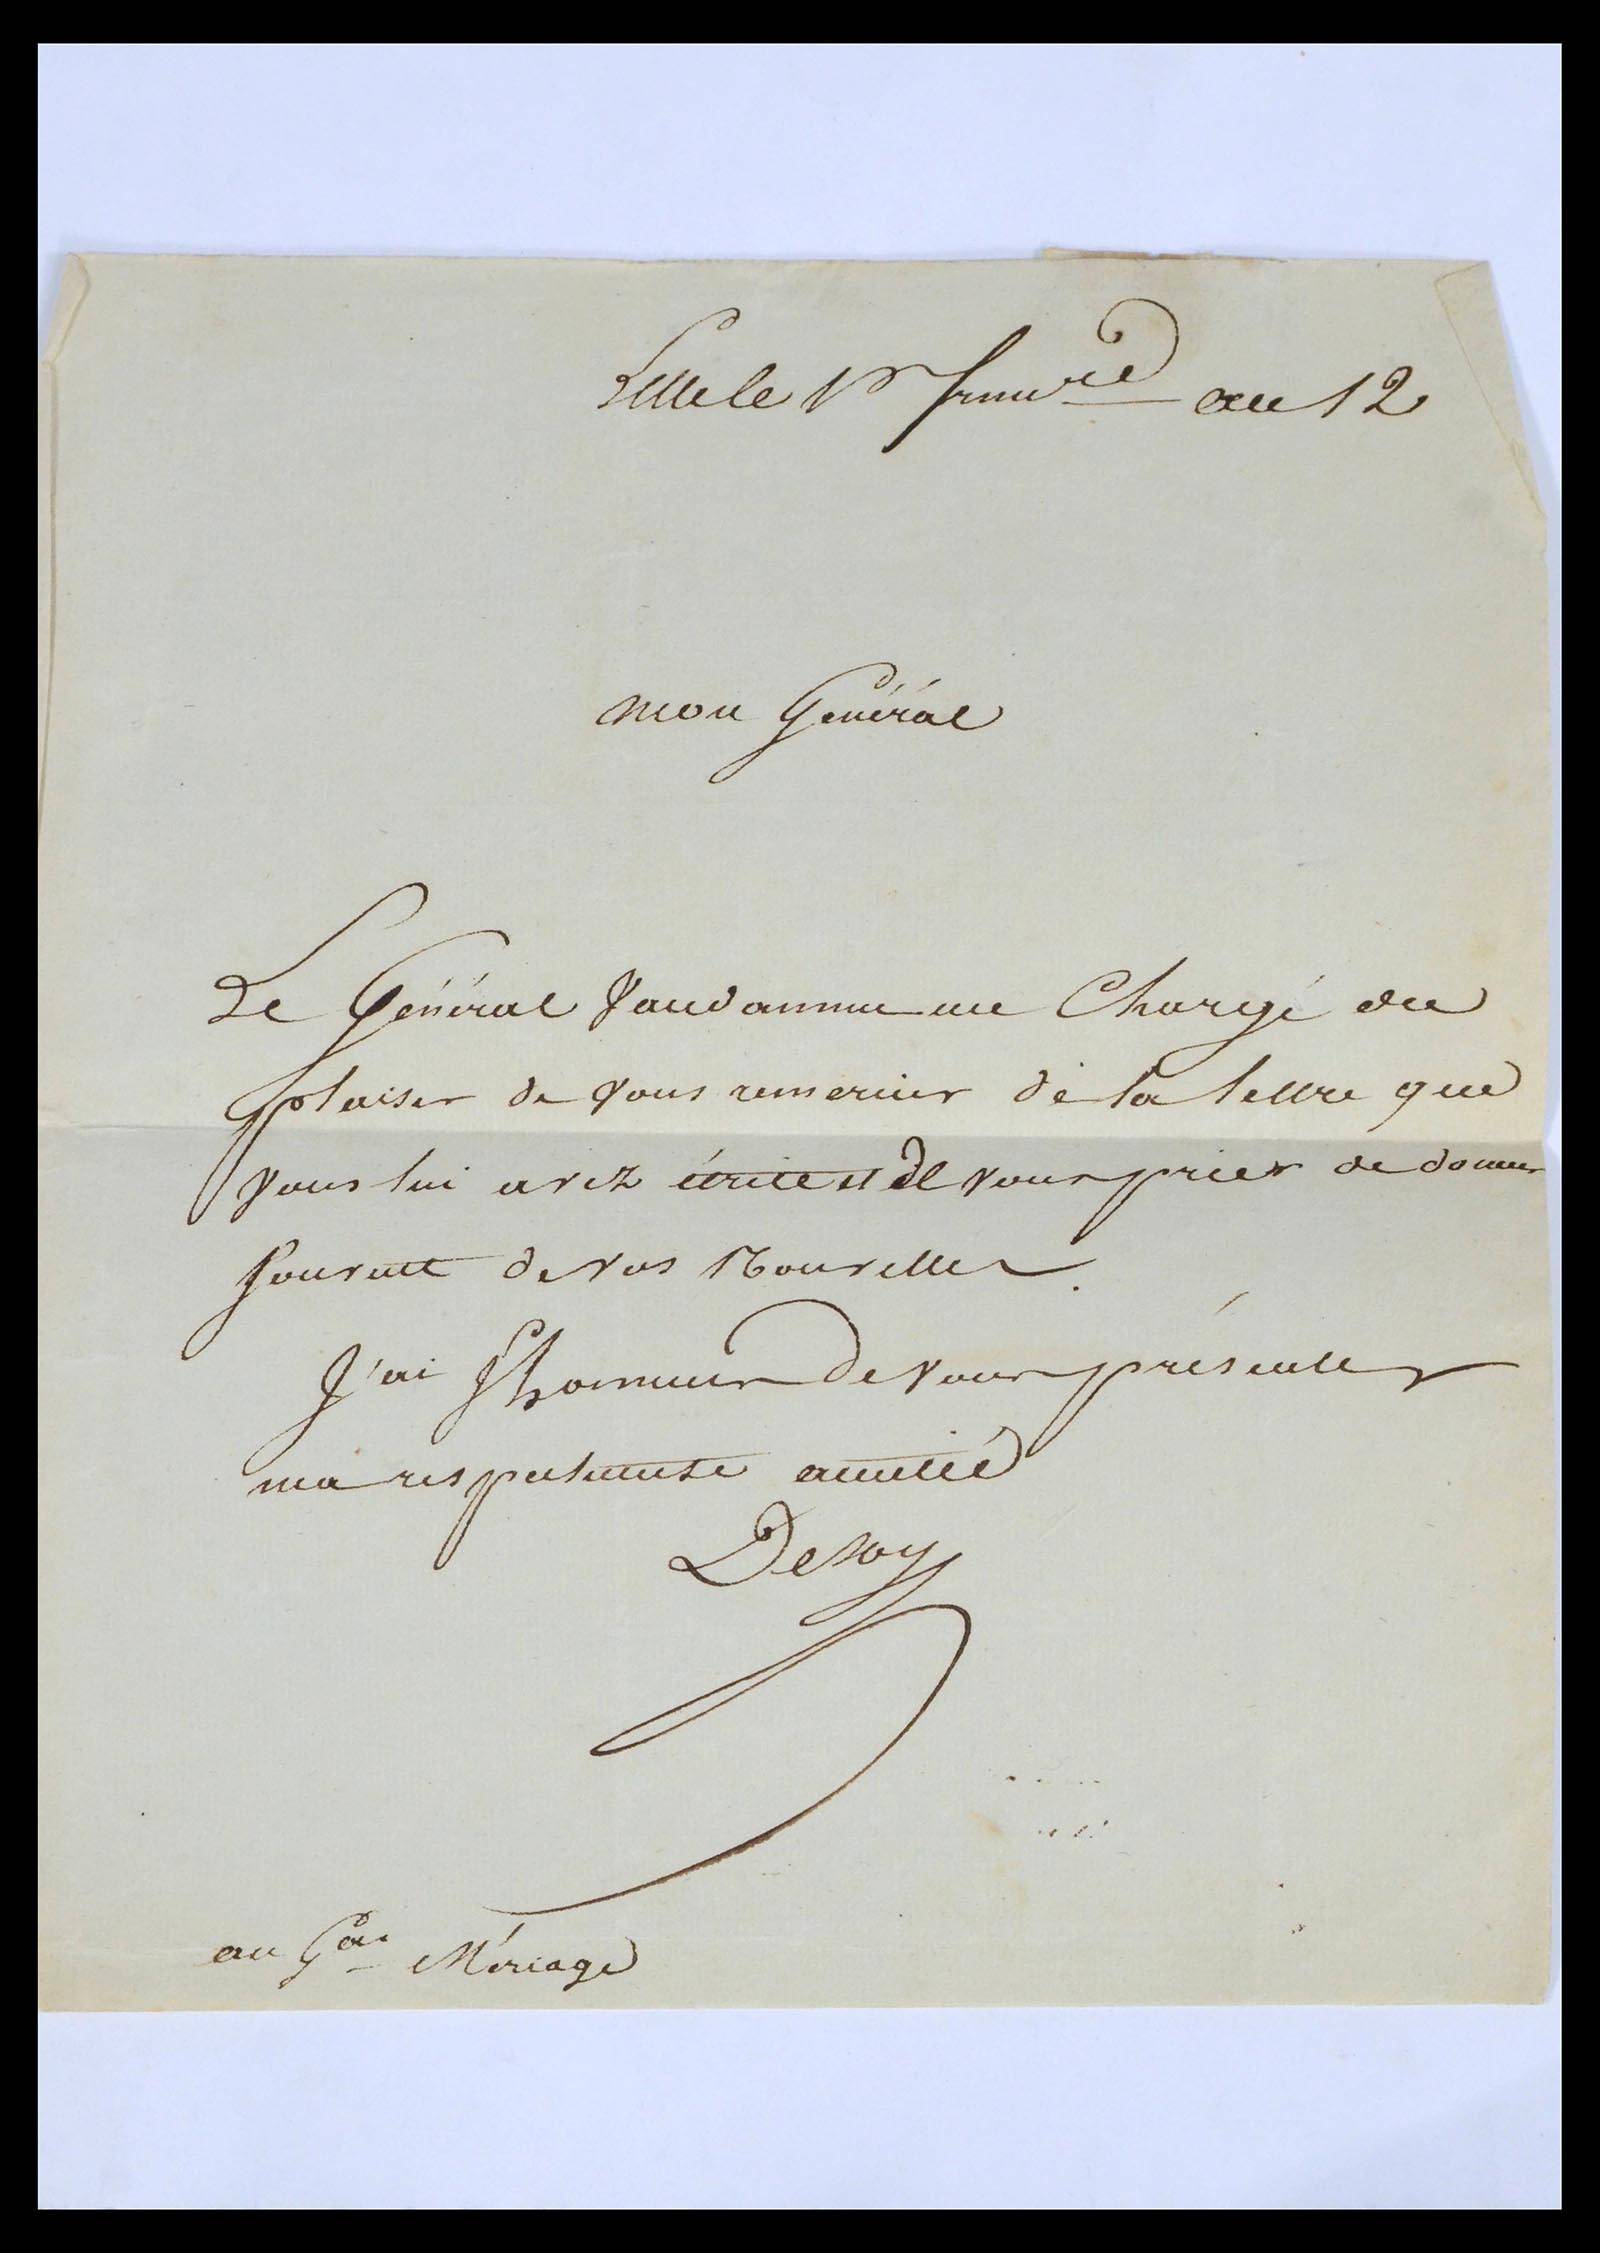 Lille le 1er frimre an 12
mon Général
Le Général Vandamme me Charge du
plaisir de vous remercier de la lettre que
vous lui avez écrite et de vous prier de donner
souvent de vos Nouvelles.
J'ai l'honneur de vous présenter
ma respectueuse amitié
Desoy
au Gal Mériage